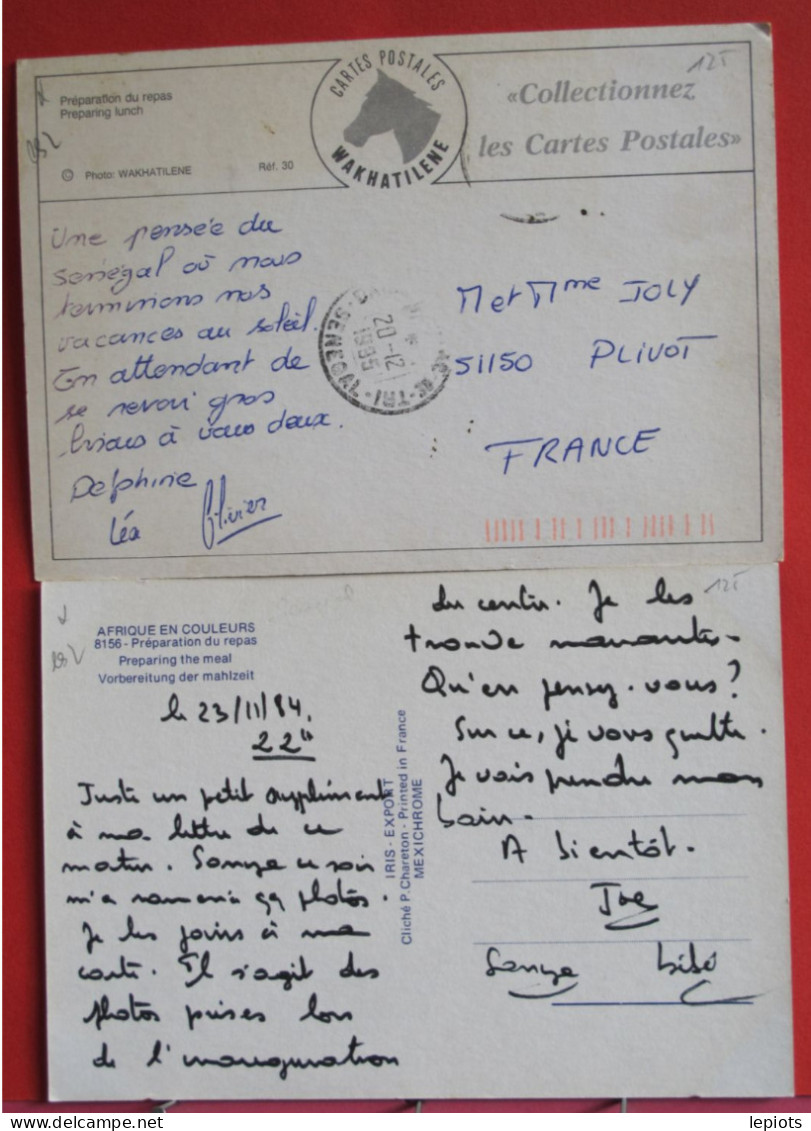 Préparation du repas
Preparing lunch
© Photo: WAKHATILENE Réf. 30
CARTES POSTALES
WAKHATILENE
«Collectionnez
les Cartes Postales»
12T
Une pensée du
Sénégal où nous
terminions nos
vacances au soleil.
En attendant de
se revoir gros
bisous à vous deux.
Delphine
Léa Olivier
20-12
1985
SENEGAL
M et Mme JOLY
51150 PLIVOT
FRANCE
AFRIQUE EN COULEURS
8156 - Préparation du repas
Preparing the meal
Vorbereitung der mahlzeit
le 23/11/84.
22h
Juste un petit supplément
à ma lettre de ce
matin. Sonya ce soir
m'a ramené ça photos.
Je les joins à ma
carte. Il s'agit des
photos prises lors
de l'inauguration
IRIS - EXPORT
Cliché P. Chareton - Printed in France
MEXICHROME
12T
du centre. Je les
trouve marrantes.
Qu'en pensez-vous?
Sur ce, je vous quitte.
Je vais prendre mon
bain.
A bientôt.
Joe
Sonya bébé
lepiots